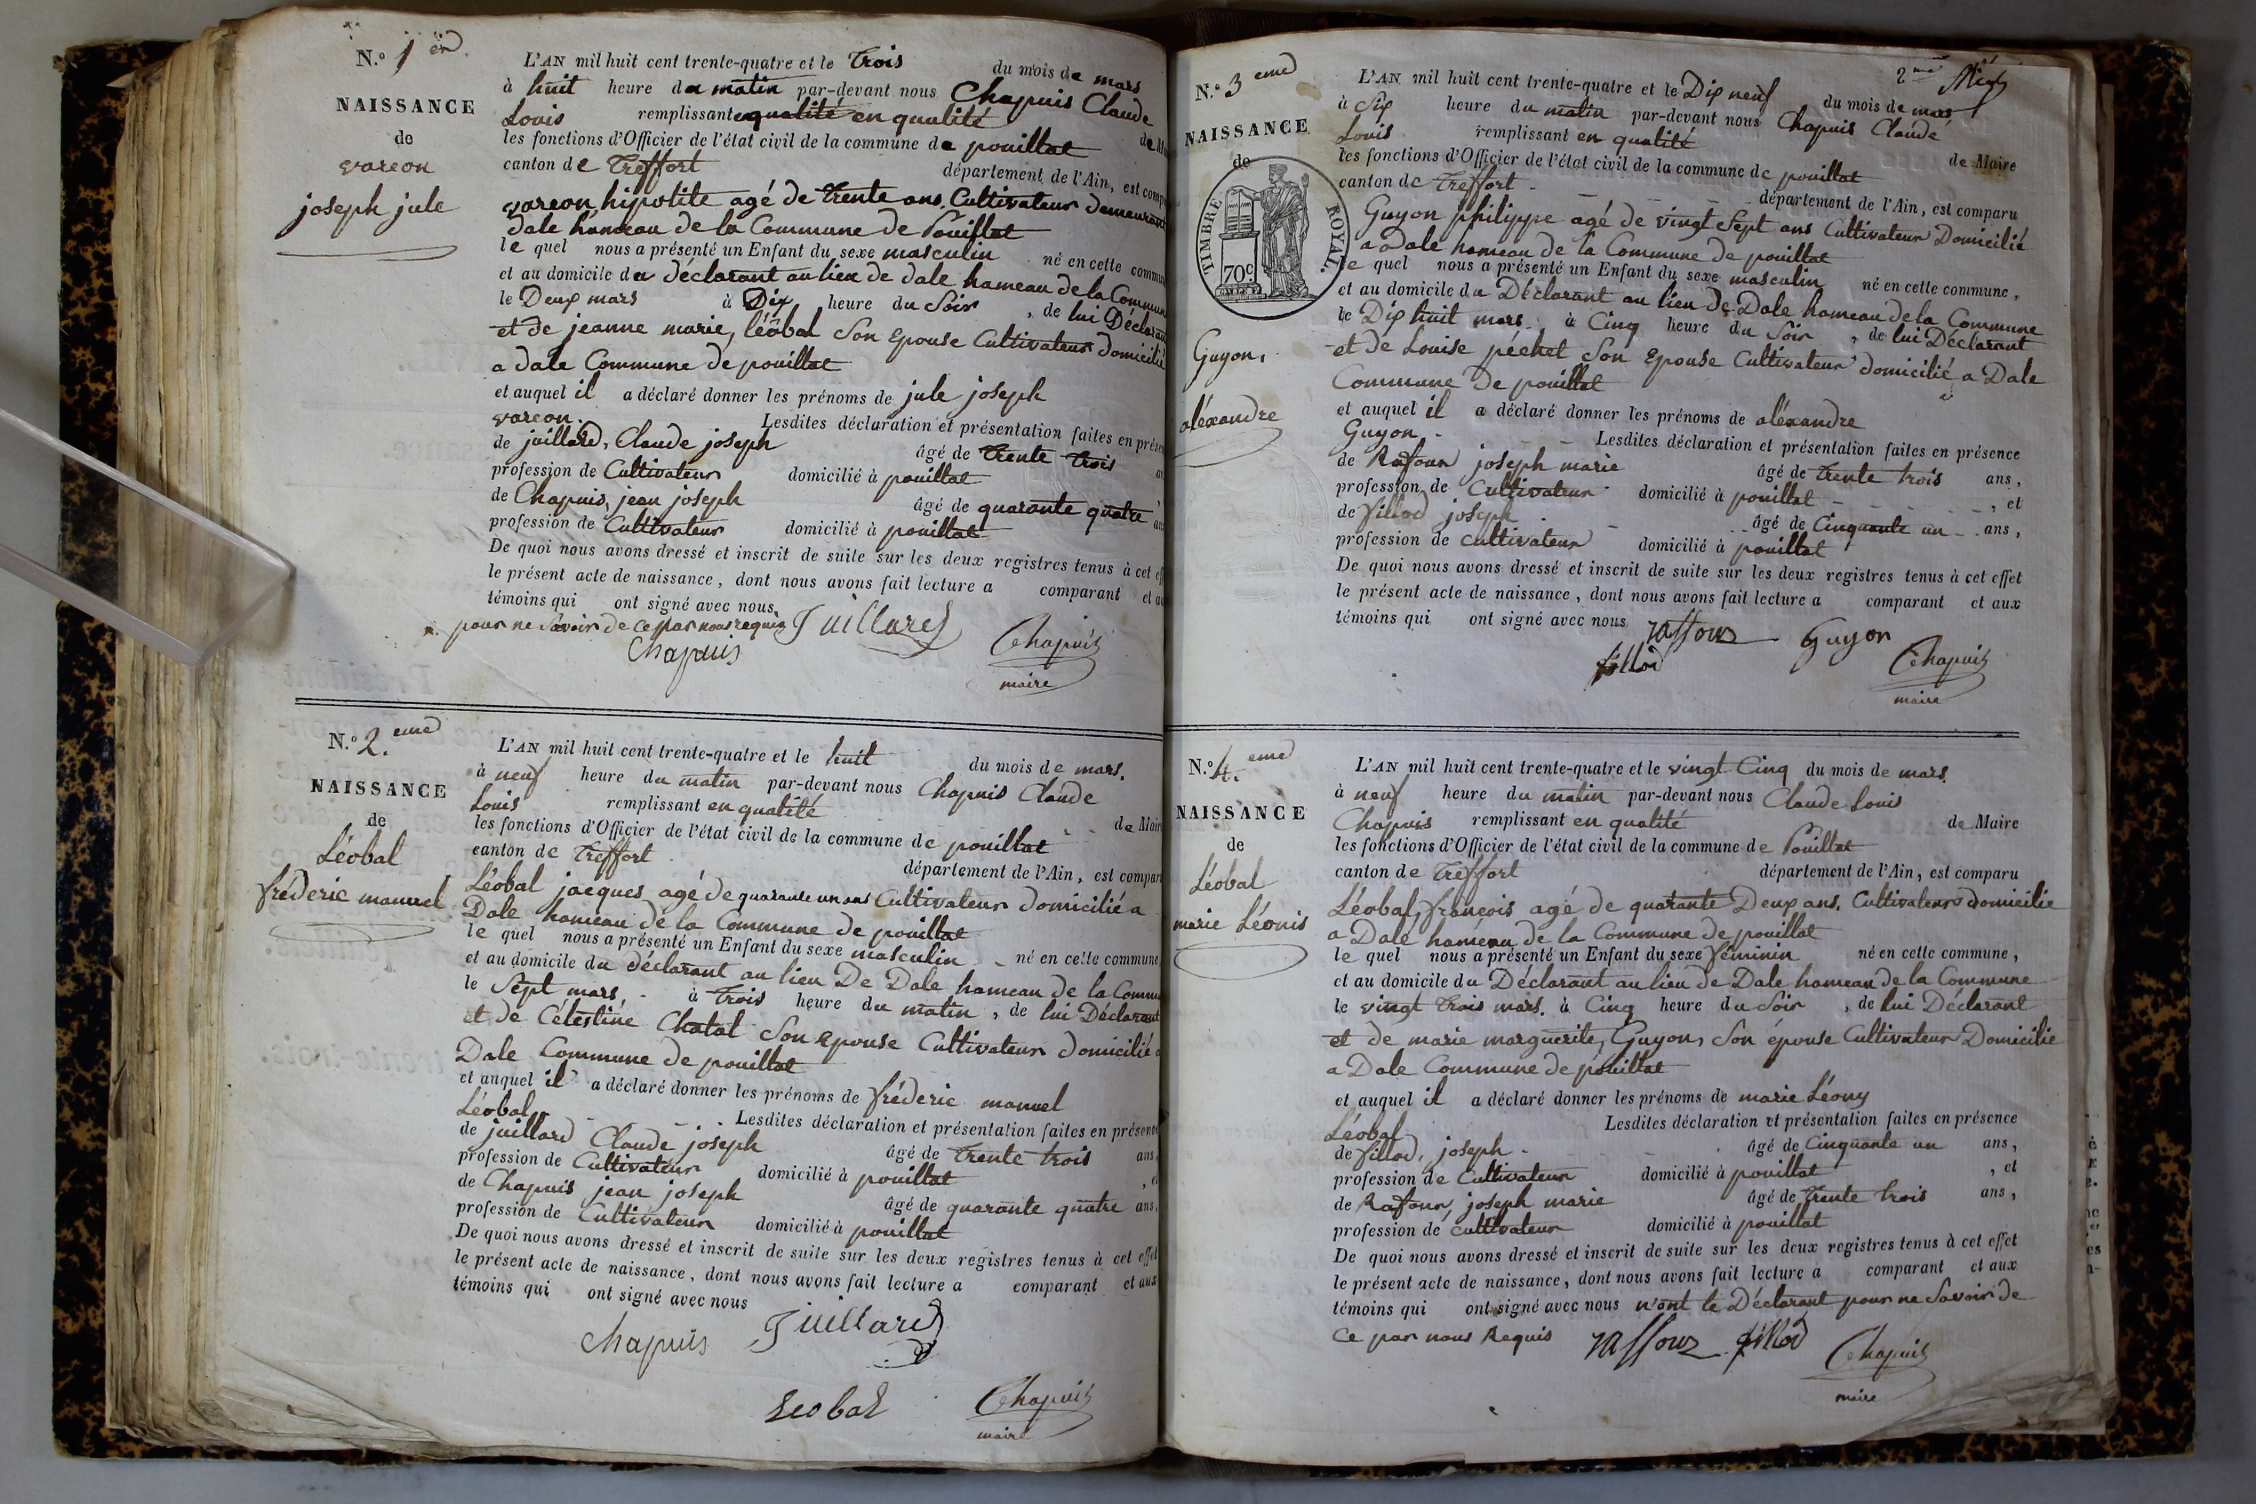 N.° 1er
NAISSANCE
de
vareon
joseph jule
L'AN mil huit cent trente-quatre et le Trois du mois de mars
à huit heure du matin par-devant nous Chapuis Claude
Louis remplissant qualité en qualité
les fonctions d'Officier de l'état civil de la commune de pouillat de M
canton de Treffort département de l'Ain, est comp
vareon hipolite agé de trente ans Cultivateur demeurant
Dale hameau de la Commune de Pouillat
le quel nous a présenté un Enfant du sexe masculin né en cette commun
et au domicile du déclarant au lieu de dale hameau de la Commune
le Deux mars à Dix heure du Soir, de lui Déclarant
et de jeanne marie, léobal Son Epouse Cultivateur domicilié
a dale Commune de pouillat
et auquel il a déclaré donner les prénoms de jule joseph
vareon. Lesdites déclaration et présentation faites en présen
de juillard, Claude joseph âgé de Trente Trois an
profession de Cultivateur domicilié à pouillat
de Chapuis, jean joseph âgé de quarante quatre an
profession de Cultivateur domicilié à pouillat
De quoi nous avons dressé et inscrit de suite sur les deux registres tenus à cet eff
le présent acte de naissance, dont nous avons fait lecture a comparant et au
témoins qui ont signé avec nous
pour ne Savoir de ce par nous requis Juillard
Chapuis Chapuis
maire
N.° 2.eme
NAISSANCE
de
Léobal
fréderic manuel
L'AN mil huit cent trente-quatre et le huit du mois de mars.
à neuf heure du matin par-devant nous Chapuis Claude
Louis remplissant en qualité de Maire
les fonctions d'Officier de l'état civil de la commune de pouillat
canton de Treffort département de l'Ain, est comparu
Léobal jacques agé de quarante un ans Cultivateur domicilié a
Dale hameau de la Commune de pouillat
le quel nous a présenté un Enfant du sexe masculin né en cette commune
et au domicile du déclarant au lieu De Dale hameau de la Commu
le Sept mars à Trois heure du matin, de lui Déclarant
et de Célestine Chatal Son Epouse Cultivateur domicilié a
Dale Commune de pouillat
et auquel il a déclaré donner les prénoms de fréderic manuel
Léobal Lesdites déclaration et présentation faites en présence
de juillard Claude joseph âgé de Trente trois ans,
profession de Cultivateur domicilié à pouillat
de Chapuis jean joseph âgé de quarante quatre ans,
profession de Cultivateur domicilié à pouillat
De quoi nous avons dressé et inscrit de suite sur les deux registres tenus à cet effet
le présent acte de naissance, dont nous avons fait lecture a comparant et aux
témoins qui ont signé avec nous
Chapuis Juillard
Leobal Chapuis
maire
2me
N.° 3 eme
NAISSANCE
de
TIMBRE ROYAL.
70c
Guyon,
aléxandre
L'AN mil huit cent trente-quatre et le Dix neuf du mois de mars
à Six heure du matin par-devant nous Chapuis Claude
Louis remplissant en qualité de Maire
les fonctions d'Officier de l'état civil de la commune de pouillat
canton de Treffort département de l'Ain, est comparu
Guyon philippe agé de vingt Sept ans Cultivateur Domicilié
a Dale hameau de la Commune de pouillat
le quel nous a présenté un Enfant du sexe masculin né en cette commune,
et au domicile du Déclarant au lieu de Dale hameau de la Commune
le Dix huit mars à Cinq heure du Soir, de lui Déclarant
et de Louise péchet Son Epouse Cultivateur domicilié a Dale
Commune de pouillat
et auquel il a déclaré donner les prénoms de aléxandre
Guyon Lesdites déclaration et présentation faites en présence
de Raffour joseph marie âgé de trente trois ans,
profession de Cultivateur domicilié à pouillat, et
de fillod joseph âgé de Cinquante un ans,
profession de Cultivateur domicilié à pouillat
De quoi nous avons dressé et inscrit de suite sur les deux registres tenus à cet effet
le présent acte de naissance, dont nous avons fait lecture a comparant et aux
témoins qui ont signé avec nous raffour Guyon
fillod Chapuis
maire
N.° 4. eme
NAISSANCE
de
Léobal
marie Léonis
L'AN mil huit cent trente-quatre et le vingt Cinq du mois de mars
à neuf heure du matin par-devant nous Claude Louis
Chapuis remplissant en qualité de Maire
les fonctions d'Officier de l'état civil de la commune de Pouillat
canton de Treffort département de l'Ain, est comparu
Léobal, françois agé de quarante Deux ans, Cultivateur domicilie
a Dale haméau de la Commune de pouillat
le quel nous a présenté un Enfant du sexe féminin né en cette commune,
et au domicile du Déclarant au lieu de Dale hameau de la Commune
le vingt Trois mars. à Cinq heure du Soir, de lui Déclarant
et de marie marguerite, Guyon, Son épouse Cultivateur Domicilie
a Dale Commune de pouillat
et auquel il a déclaré donner les prénoms de marie Léony
Léobal Lesdites déclaration et présentation faites en présence
de fillod, joseph âgé de Cinquante un ans,
profession de Cultivateur domicilié à pouillat, et
de Raffour, joseph marie âgé de Trente trois ans,
profession de cultivateur domicilié à pouillat
De quoi nous avons dressé et inscrit de suite sur les deux registres tenus à cet effet
le présent acte de naissance, dont nous avons fait lecture a comparant et aux
témoins qui ont signé avec nous n'ont le Déclarant pour ne Savoir de
Ce par nous Requis raffour fillod Chapuis
maire